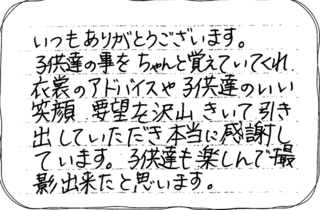 いつもありがとうございます。
子供達の事をちゃんと覚えていてくれ
衣裳のアドバイスや子供達のいい
笑顔 要望を沢山きいて引き
出していただき本当に感謝し
ています。子供達も楽しんで撮
影出来たと思います。